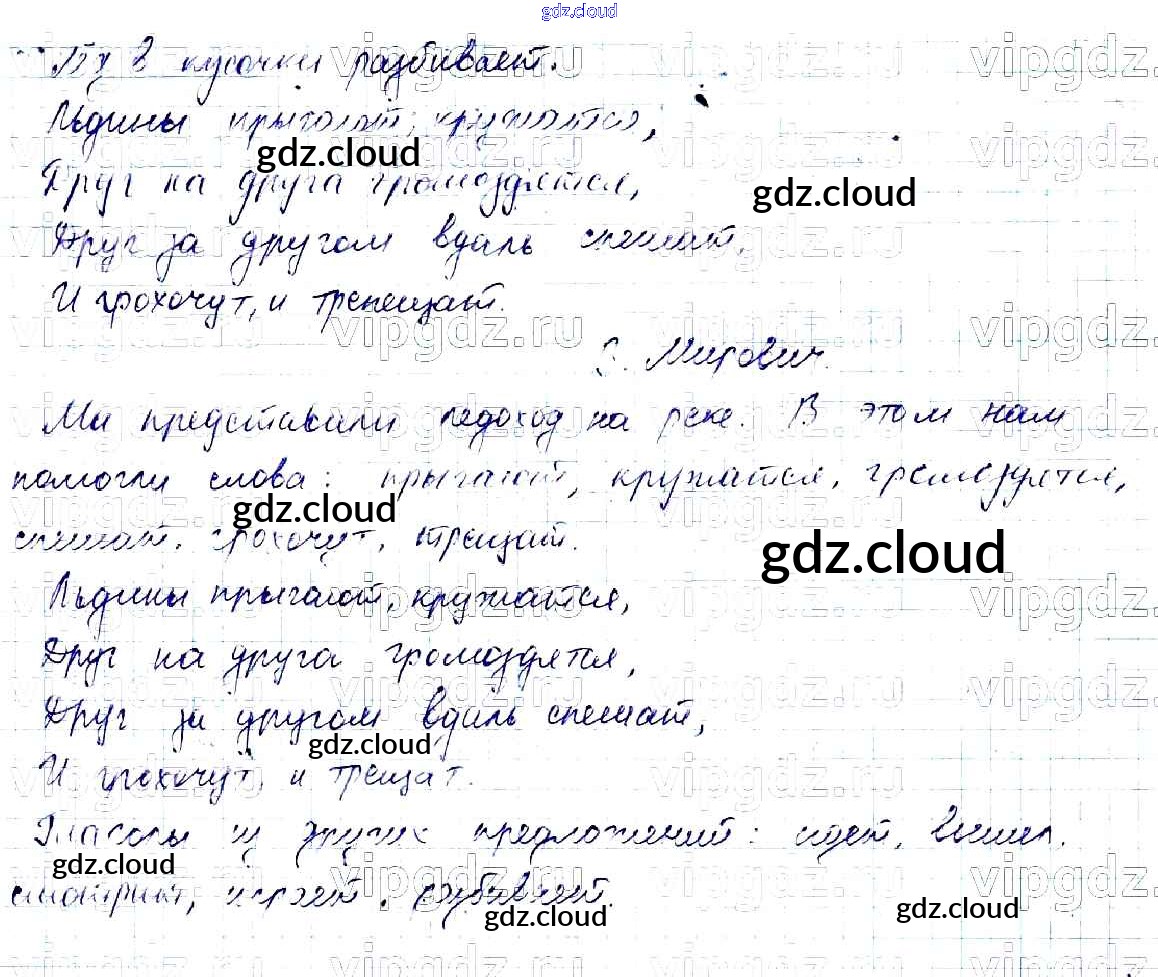 gdz.cloud
в кусочки разбивает.
Льдины прыгают, кружатся,
Друг на друга громоздятся,
Друг за другом вдаль спешат,
И грохочут, и трепещат.
Мирович.
Мы представили ледоход на реке. В этом нам
помогли слова: прыгают, кружатся, громоздятся,
спешат, грохочут, трещат.
Льдины прыгают, кружатся,
Друг на друга громоздятся,
Друг за другом вдаль спешат,
И грохочут, и трещат.
Глаголы из других предложений: идет, вышел,
смотрит, играет, разбивает.